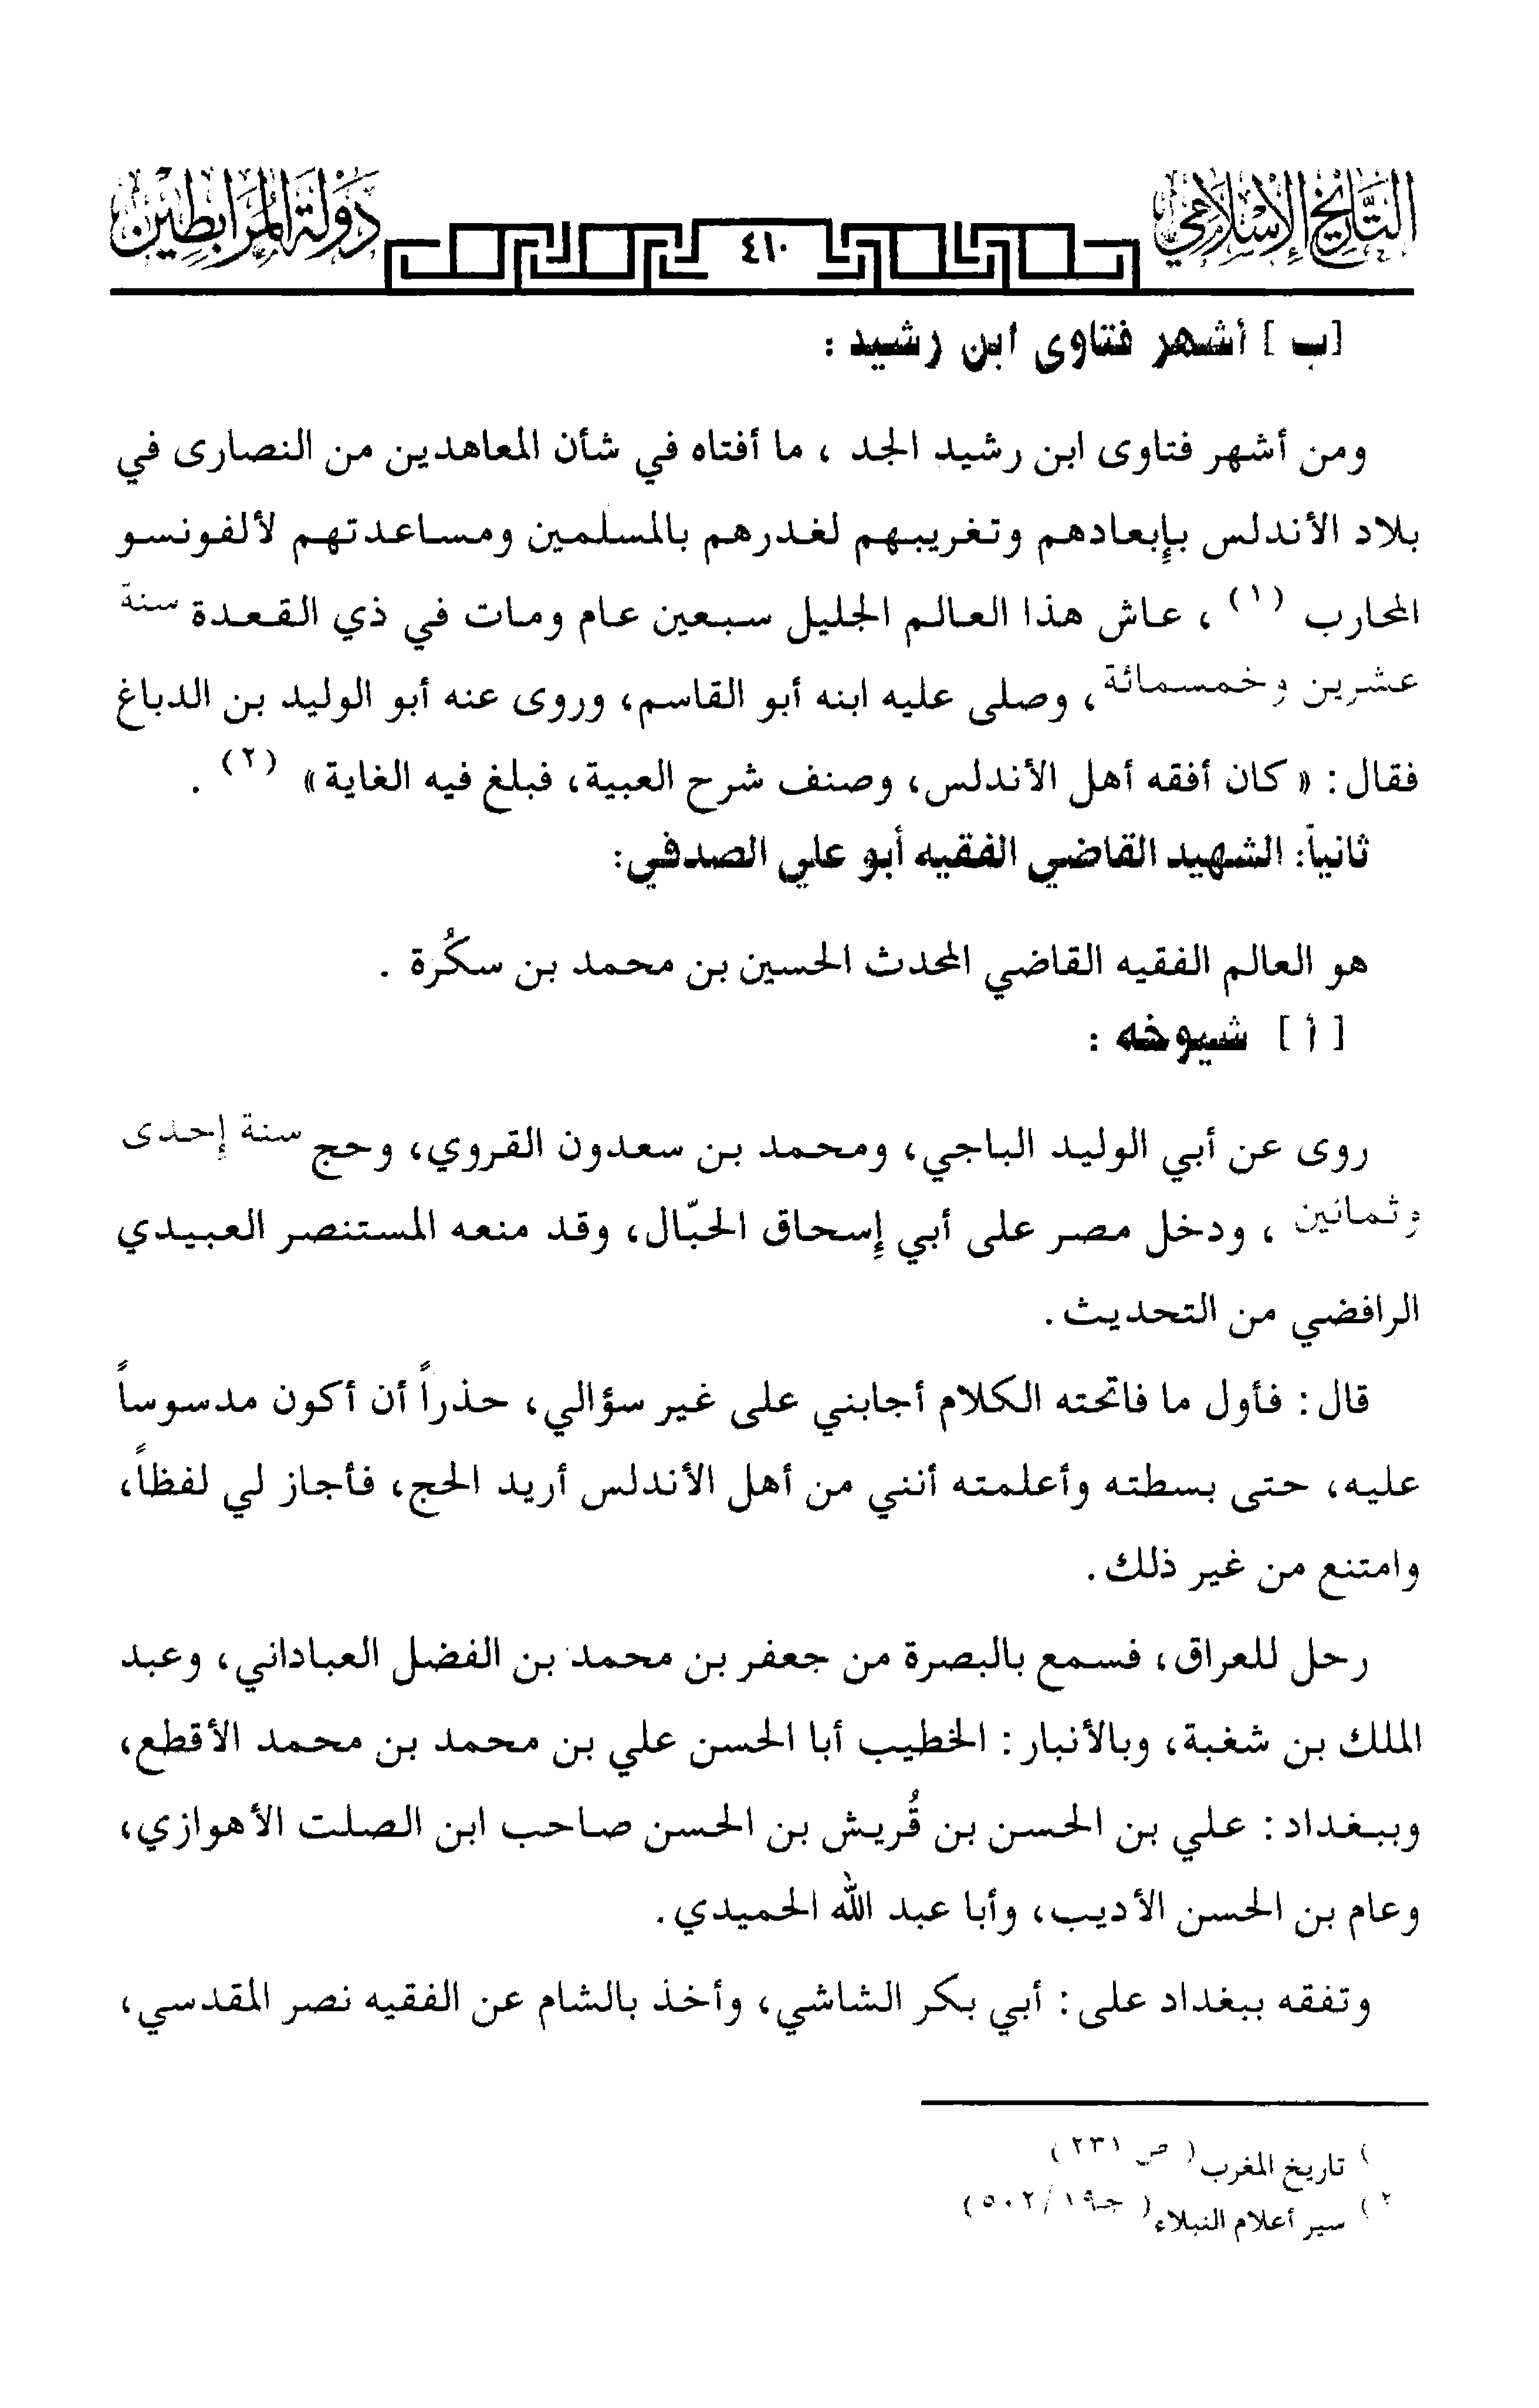 التاريخ الإسلامي ٤١٠ دولة المرابطين
[ب] أشهر فتاوى ابن رشيد :
ومن أشهر فتاوى ابن رشيد الجد ، ما أفتاه في شأن المعاهدين من النصارى في
بلاد الأندلس بإبعادهم وتغريبهم لغدرهم بالمسلمين ومساعدتهم لألفونسو
المحارب (١) ، عاش هذا العالم الجليل سبعين عام ومات في ذي القعدة سنة
عشرين وخمسمائة، وصلى عليه ابنه أبو القاسم، وروى عنه أبو الوليد بن الدباغ
فقال : « كان أفقه أهل الأندلس، وصنف شرح العبية، فبلغ فيه الغاية » (٢) .
ثانياً: الشهيد القاضي الفقيه أبو علي الصدفي:
هو العالم الفقيه القاضي المحدث الحسين بن محمد بن سكُرة .
[ أ ] شيوخه :
روى عن أبي الوليد الباجي، ومحمد بن سعدون القروي، وحج سنة إحدى
وثمانين ، ودخل مصر على أبي إسحاق الحبّال، وقد منعه المستنصر العبيدي
الرافضي من التحديث.
قال : فأول ما فاتحته الكلام أجابني على غير سؤالي، حذراً أن أكون مدسوساً
عليه، حتى بسطته وأعلمته أنني من أهل الأندلس أريد الحج، فأجاز لي لفظاً،
وامتنع من غير ذلك.
رحل للعراق، فسمع بالبصرة من جعفر بن محمد بن الفضل العباداني، وعبد
الملك بن شغبة، وبالأنبار : الخطيب أبا الحسن علي بن محمد بن محمد الأقطع،
وببغداد : علي بن الحسن بن قُريش بن الحسن صاحب ابن الصلت الأهوازي،
وعام بن الحسن الأديب، وأبا عبد الله الحميدي.
وتفقه ببغداد على : أبي بكر الشاشي، وأخذ بالشام عن الفقيه نصر المقدسي،
) تاريخ المغرب ( ص ٢٣١ )
٢ ) سير أعلام النبلاء ( جـ١٩ / ٥٠٢ )